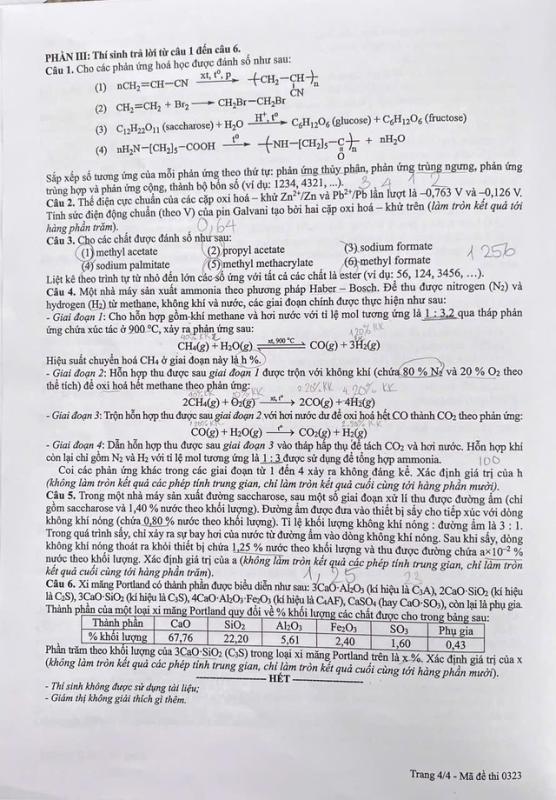 PHẦN III: Thí sinh trả lời từ câu 1 đến câu 6.
Câu 1. Cho các phản ứng hoá học được đánh số như sau:
(1) nCH₂=CH—CN —xt, t°, p→ —(CH₂—CH)—n
CN
(2) CH₂=CH₂ + Br₂ ⟶ CH₂Br—CH₂Br
(3) C₁₂H₂₂O₁₁ (saccharose) + H₂O —H⁺, t°→ C₆H₁₂O₆ (glucose) + C₆H₁₂O₆ (fructose)
(4) nH₂N—[CH₂]₅—COOH —t°→ —(NH—[CH₂]₅—C)—n + nH₂O
O
Sắp xếp số tương ứng của mỗi phản ứng theo thứ tự: phản ứng thủy phân, phản ứng trùng ngưng, phản ứng
trùng hợp và phản ứng cộng, thành bộ bốn số (ví dụ: 1234, 4321, ...). 3 4 1 2
Câu 2. Thế điện cực chuẩn của các cặp oxi hoá – khử Zn²⁺/Zn và Pb²⁺/Pb lần lượt là –0,763 V và –0,126 V.
Tính sức điện động chuẩn (theo V) của pin Galvani tạo bởi hai cặp oxi hoá – khử trên (làm tròn kết quả tới
hàng phần trăm). 0,64
Câu 3. Cho các chất được đánh số như sau:
(1) methyl acetate (2) propyl acetate (3) sodium formate 1256
(4) sodium palmitate (5) methyl methacrylate (6) methyl formate
Liệt kê theo trình tự từ nhỏ đến lớn các số ứng với tất cả các chất là ester (ví dụ: 56, 124, 3456, …).
Câu 4. Một nhà máy sản xuất ammonia theo phương pháp Haber – Bosch. Để thu được nitrogen (N₂) và
hydrogen (H₂) từ methane, không khí và nước, các giai đoạn chính được thực hiện như sau:
- Giai đoạn 1: Cho hỗn hợp gồm khí methane và hơi nước với tỉ lệ mol tương ứng là 1 : 3,2 qua tháp phản
ứng chứa xúc tác ở 900 °C, xảy ra phản ứng sau:
CH₄(g) + H₂O(g) ⇌ xt, 900 °C CO(g) + 3H₂(g)
Hiệu suất chuyển hoá CH₄ ở giai đoạn này là h %.
- Giai đoạn 2: Hỗn hợp thu được sau giai đoạn 1 được trộn với không khí (chứa 80 % N₂ và 20 % O₂ theo
thể tích) để oxi hoá hết methane theo phản ứng:
2CH₄(g) + O₂(g) —xt, t°→ 2CO(g) + 4H₂(g)
- Giai đoạn 3: Trộn hỗn hợp thu được sau giai đoạn 2 với hơi nước dư để oxi hoá hết CO thành CO₂ theo phản ứng:
CO(g) + H₂O(g) —t°→ CO₂(g) + H₂(g)
- Giai đoạn 4: Dẫn hỗn hợp thu được sau giai đoạn 3 vào tháp hấp thụ để tách CO₂ và hơi nước. Hỗn hợp khí
còn lại chỉ gồm N₂ và H₂ với tỉ lệ mol tương ứng là 1 : 3 được sử dụng để tổng hợp ammonia.
Coi các phản ứng khác trong các giai đoạn từ 1 đến 4 xảy ra không đáng kể. Xác định giá trị của h 100
(không làm tròn kết quả các phép tính trung gian, chỉ làm tròn kết quả cuối cùng tới hàng phần mười).
Câu 5. Trong một nhà máy sản xuất đường saccharose, sau một số giai đoạn xử lí thu được đường ẩm (chỉ
gồm saccharose và 1,40 % nước theo khối lượng). Đường ẩm được đưa vào thiết bị sấy cho tiếp xúc với dòng
không khí nóng (chứa 0,80 % nước theo khối lượng). Tỉ lệ khối lượng không khí nóng : đường ẩm là 3 : 1.
Trong quá trình sấy, chỉ xảy ra sự bay hơi của nước từ đường ẩm vào dòng không khí nóng. Sau khi sấy, dòng
không khí nóng thoát ra khỏi thiết bị chứa 1,25 % nước theo khối lượng và thu được đường chứa a×10⁻² %
nước theo khối lượng. Xác định giá trị của a (không làm tròn kết quả các phép tính trung gian, chỉ làm tròn
kết quả cuối cùng tới hàng phần trăm). 1,25 23
Câu 6. Xi măng Portland có thành phần được biểu diễn như sau: 3CaO·Al₂O₃ (kí hiệu là C₃A), 2CaO·SiO₂ (kí hiệu
là C₂S), 3CaO·SiO₂ (kí hiệu là C₃S), 4CaO·Al₂O₃·Fe₂O₃ (kí hiệu là C₄AF), CaSO₄ (hay CaO·SO₃), còn lại là phụ gia.
Thành phần của một loại xi măng Portland quy đổi về % khối lượng các chất được cho trong bảng sau:
Thành phần CaO SiO₂ Al₂O₃ Fe₂O₃ SO₃ Phụ gia
% khối lượng 67,76 22,20 5,61 2,40 1,60 0,43
Phần trăm theo khối lượng của 3CaO·SiO₂ (C₃S) trong loại xi măng Portland trên là x %. Xác định giá trị của x
(không làm tròn kết quả các phép tính trung gian, chỉ làm tròn kết quả cuối cùng tới hàng phần mười).
HẾT
- Thí sinh không được sử dụng tài liệu;
- Giám thị không giải thích gì thêm.
Trang 4/4 - Mã đề thi 0323